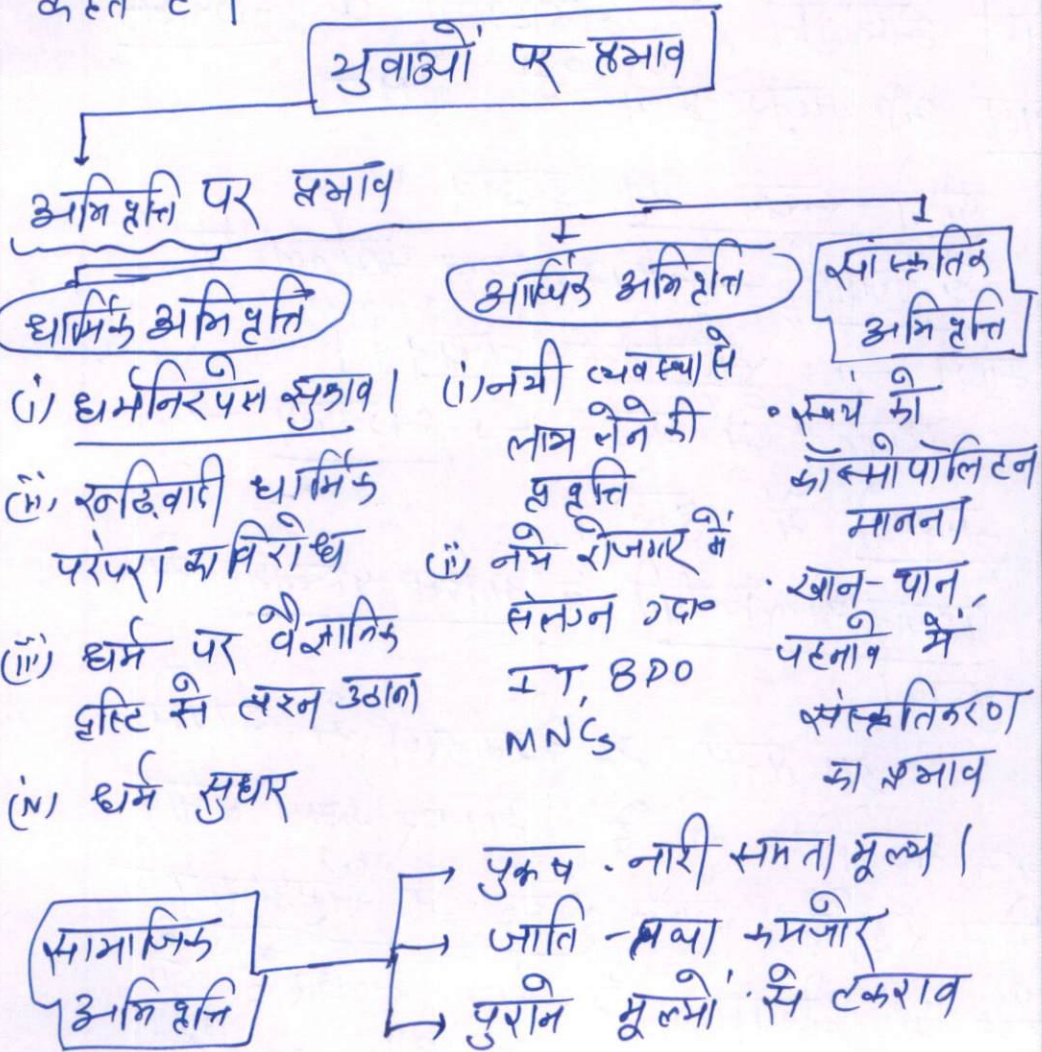 कहते है |
युवाओं पर प्रभाव
अभिवृत्ति पर प्रभाव
धार्मिक अभिवृत्ति
(i) धर्मनिरपेक्ष झुकाव।
(ii) रूढिवादी धार्मिक
परंपरा का विरोध
(iii) धर्म पर वैज्ञानिक
दृष्टि से प्रश्न उठाना
(iv) धर्म सुधार
आर्थिक अभिवृत्ति
(i) नयी व्यवस्था से
लाभ लेने की
प्रवृत्ति
(ii) नये रोजगार में
संलग्न यदा०
IT, BPO
MNCs
सांस्कृतिक
अभिवृत्ति
• स्वयं को
कॉस्मोपॉलिटन
मानना
• खान-पान,
पहनावे में
संस्कृतिकरण
का प्रभाव
सामाजिक
अभिवृत्ति
→ पुरूष - नारी समता मूल्य।
→ जाति - प्रथा कमजोर
→ पुराने मूल्यों से टकराव